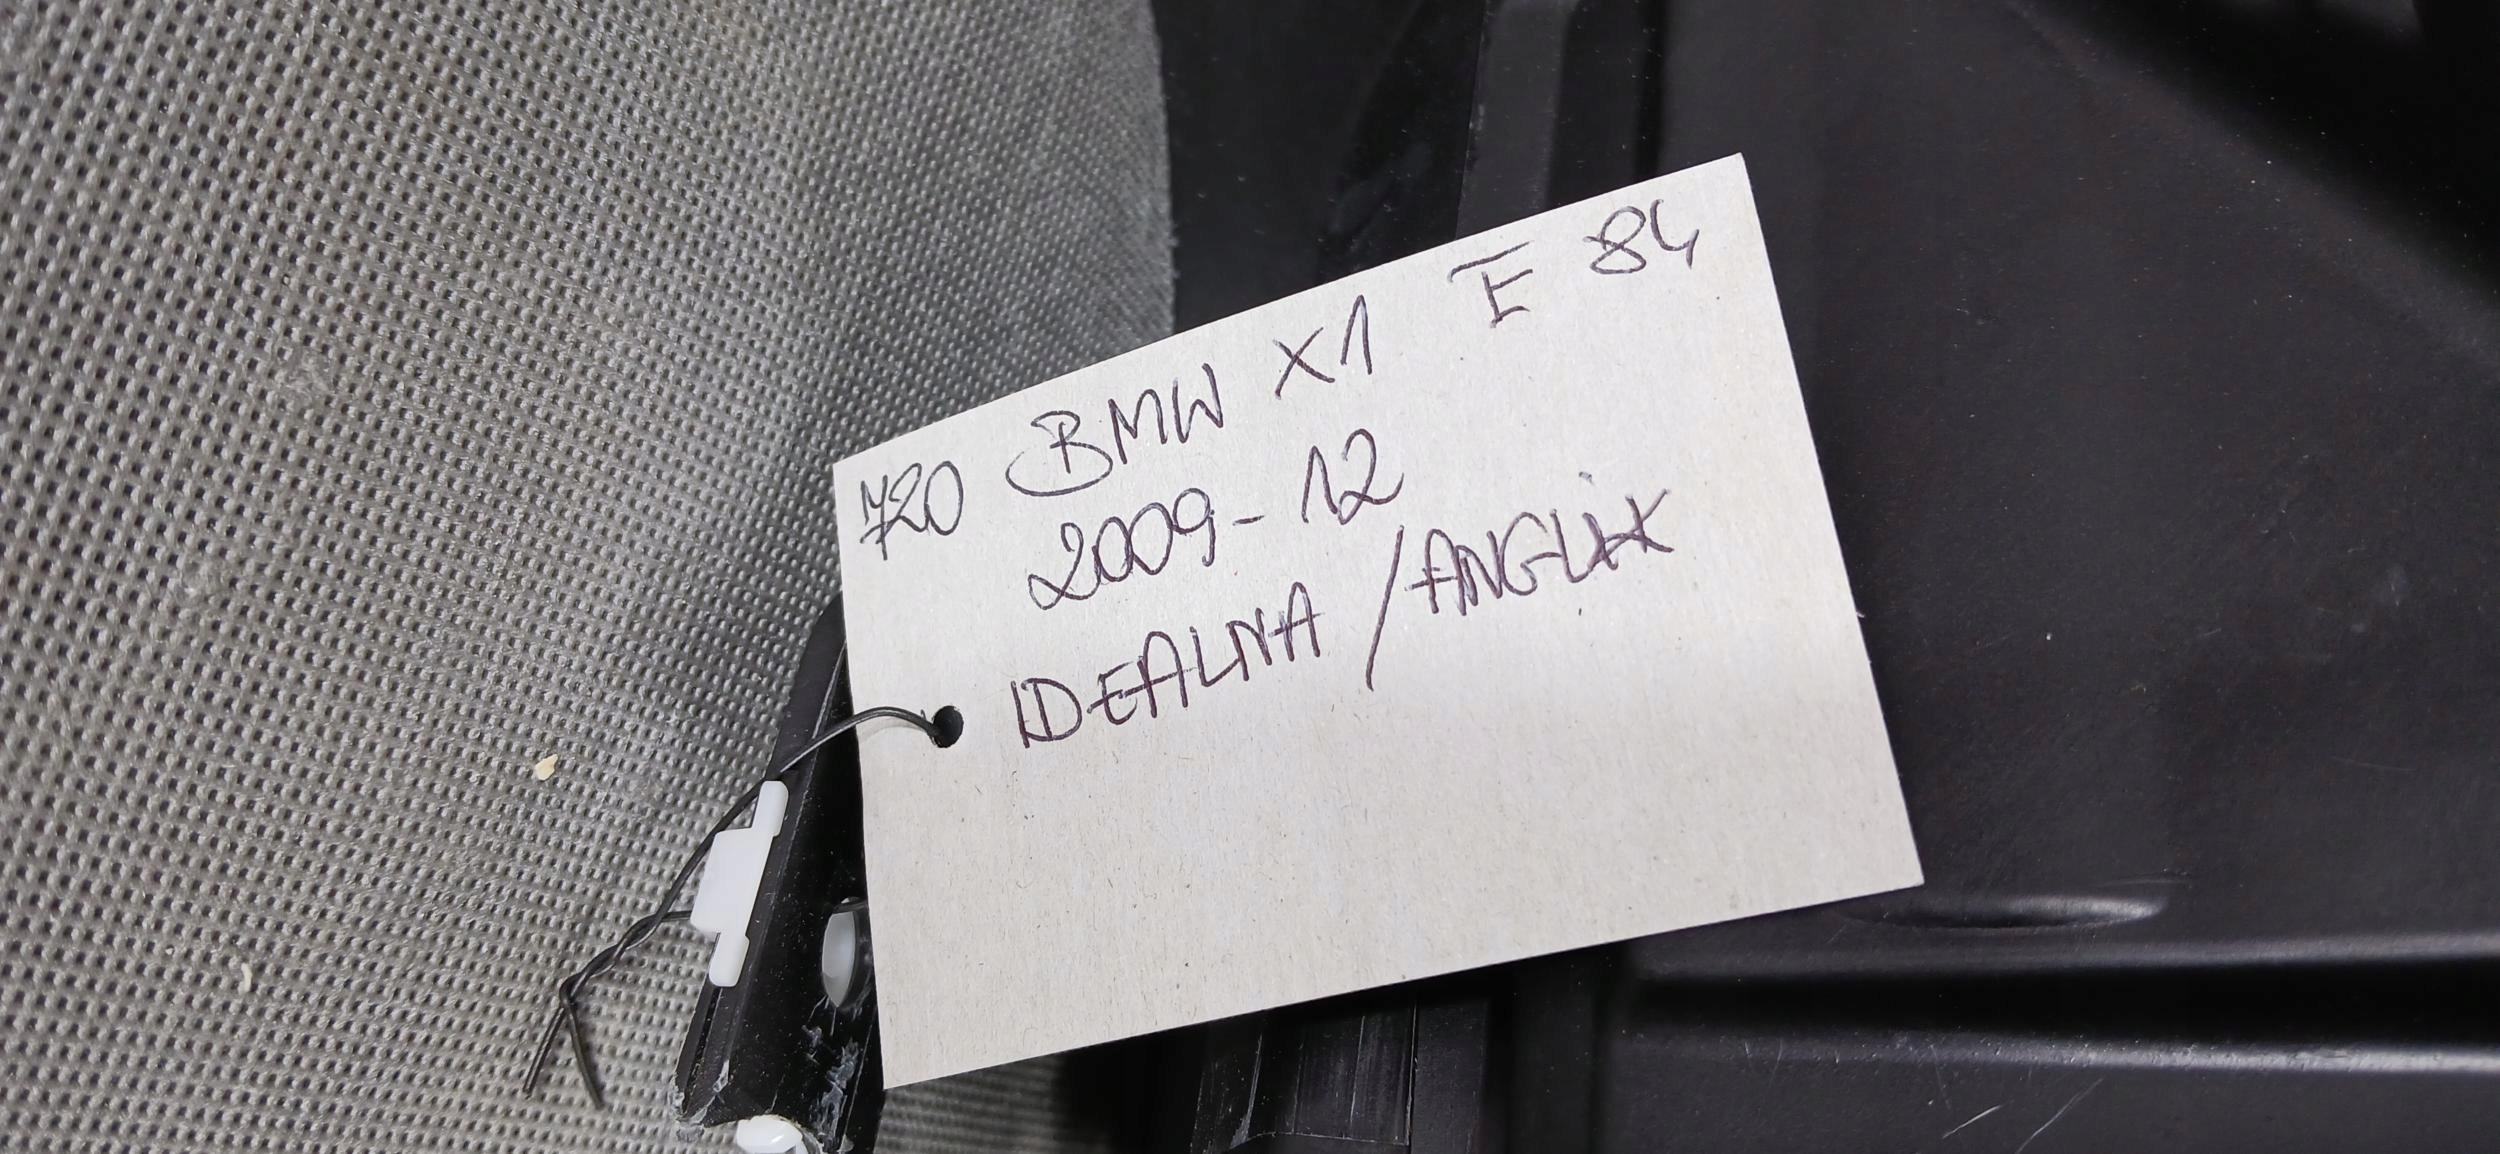 720 BMW X1 E 84
2009-12
IDEALNA/ANGLIK